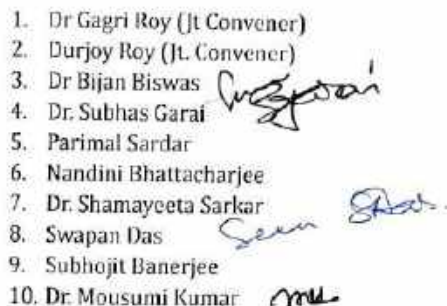 1. Dr Gagri Roy (Jt Convener)
2. Durjoy Roy (Jt. Convener)
3. Dr Bijan Biswas
4. Dr. Subhas Garai
5. Parimal Sardar
6. Nandini Bhattacharjee
7. Dr. Shamayeeta Sarkar
8. Swapan Das Seen
9. Subhojit Banerjee
10. Dr. Mousumi Kumar